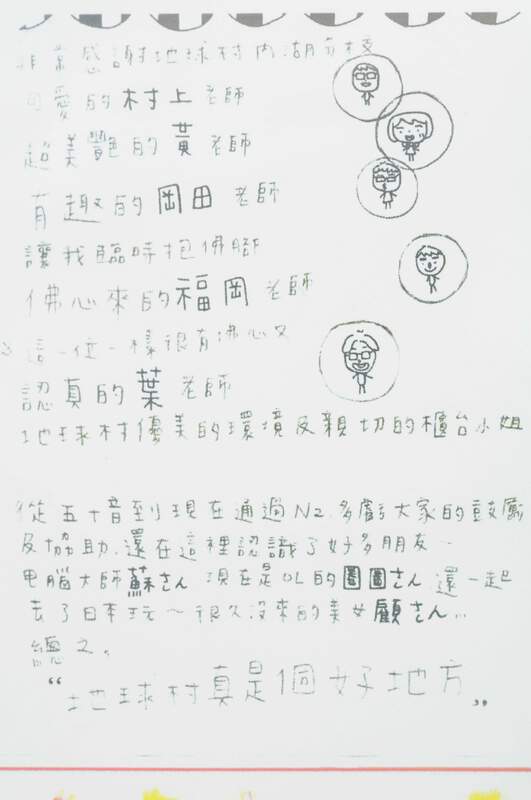 非常感謝地球村內湖分校
可愛的村上老師
超美艷的黃老師
有趣的岡田老師
讓我臨時抱佛腳
佛心來的福岡老師
這一位一樣很有佛心又
認真的葉老師
地球村優美的環境及親切的櫃台小姐
從五十音到現在通過N2.多虧大家的鼓勵
及協助.還在這裡認識了好多朋友~
電腦大師蘇さん 現在是OL的圖圖さん還一起
去了日本玩~很久沒來的美女顧さん...
總之。
“地球村真是1個好地方„